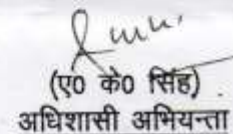 (ए0 के0 सिंह)
अधिशासी अभियन्ता